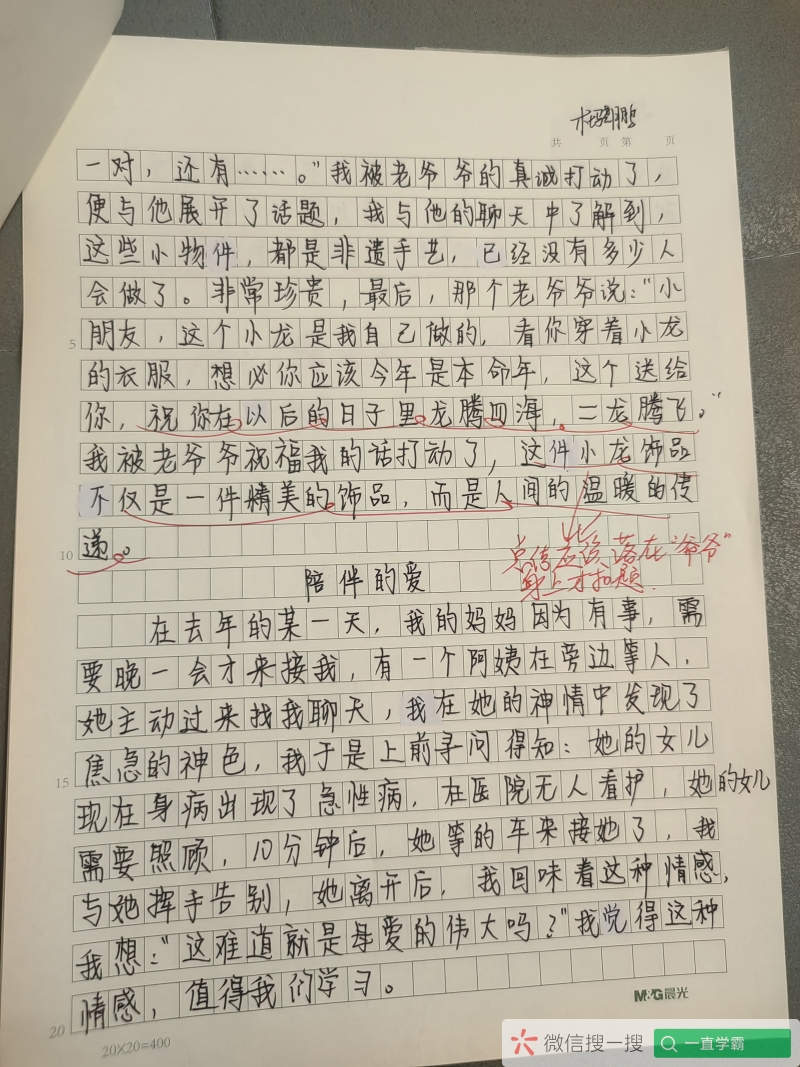 共 页 第 页
一对，还有……。"我被老爷爷的真诚打动了，
便与他展开了话题，我与他的聊天中了解到，
这些小物件，都是非遗手艺，已经没有多少人
会做了。非常珍贵，最后，那个老爷爷说："小
5 朋友，这个小龙是我自己做的，看你穿着小龙
的衣服，想必你应该今年是本命年，这个送给
你，祝你在以后的日子里龙腾四海，二龙腾飞。"
我被老爷爷祝福我的话打动了，这件小龙饰品
不仅是一件精美的饰品，而是人间的温暖的传
10 递。
点传应该落在"爷爷"
身上才扣题.
陪伴的爱
在去年的某一天，我的妈妈因为有事，需
要晚一会才来接我，有一个阿姨在旁边等人，
她主动过来找我聊天，我在她的神情中发现了
焦急的神色，我于是上前寻问得知：她的女儿
15 现在身病出现了急性病，在医院无人看护，她的女儿
需要照顾，10分钟后，她等的车来接她了，我
与她挥手告别，她离开后，我回味着这种情感，
我想："这难道就是母爱的伟大吗？"我觉得这种
20 情感，值得我们学习。
20×20=400
M&G晨光
微信搜一搜 一直学霸